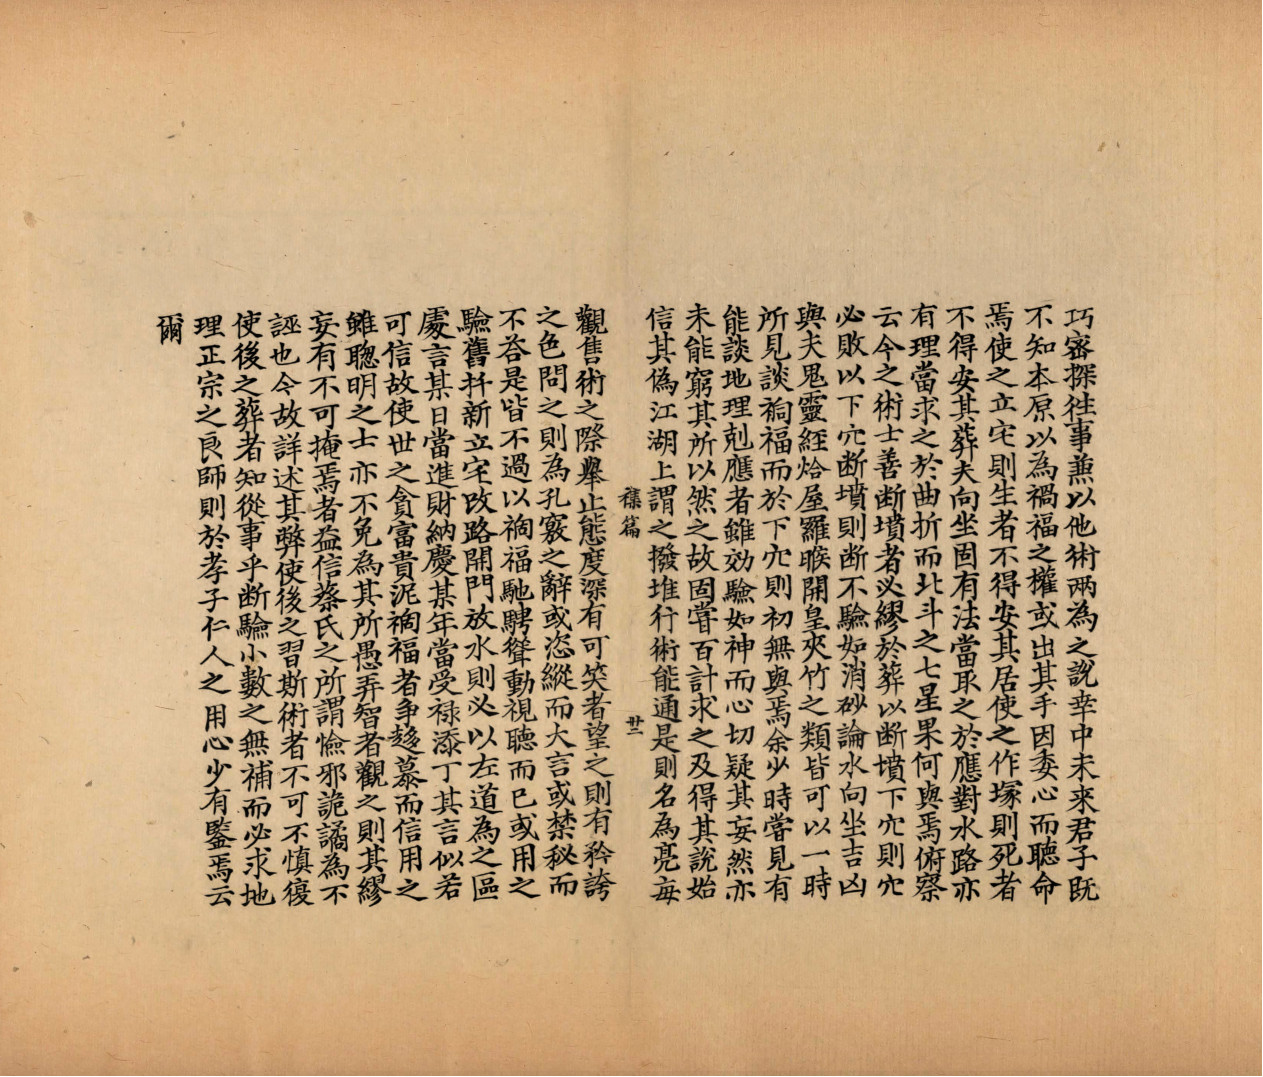 巧密探徃事兼以他術兩為之說幸中未來君子既
不知本原以為禍福之權或出其手因委心而聽命
焉使之立宅則生者不得安其居使之作塚則死者
不得安其葬夫向坐固有法當取之於應對水路亦
有理當求之於曲折而北斗之七星果何與焉俯察
云今之術士善断墳者必繆於葬以断墳下穴則穴
必敗以下穴断墳則断不驗如消砂論水向坐吉凶
與夫鬼靈經烚屋羅睺開皇夾竹之類皆可以一時
所見談禍福而於下穴則初無與焉余少時嘗見有
能談地理剋應者雖効驗如神而心切疑其妄然亦
未能窮其所以然之故固嘗百計求之及得其說始
信其偽江湖上謂之撥堆行術能通是則名為亮每
襍篇 廿三
觀售術之際舉止態度深有可笑者望之則有矜誇
之色問之則為孔竅之辭或恣縱而大言或禁秘而
不荅是皆不過以禍福馳騁聳動視聽而已或用之
驗舊扦新立宅改路開門放水則必以左道為之區
處言某日當進財納慶某年當受禄添丁其言似若
可信故使世之貪富貴泥禍福者争趍慕而信用之
雖聰明之士亦不免為其所愚弄智者觀之則其繆
妄有不可掩焉者益信蔡氏之所謂憸邪詭譎為不
誣也今故詳述其弊使後之習斯術者不可不慎復
使後之葬者知從事乎断驗小數之無補而必求地
理正宗之良師則於孝子仁人之用心少有鑒焉云
爾